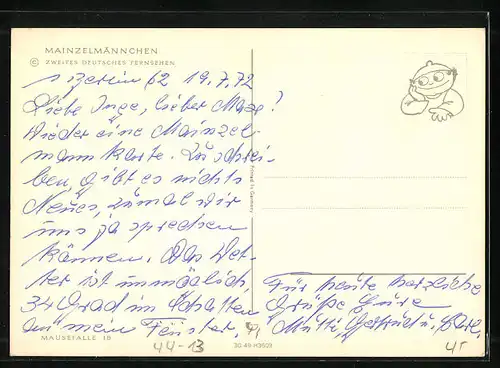 MAINZELMÄNNCHEN
© ZWEITES DEUTSCHES FERNSEHEN
1 Berlin 62 19.7.72
Liebe Inge, lieber Max!
Wieder eine Mainzel-
mannkarte. Zu schrei-
ben, gibt es nichts
Neues, zumal wir
uns ja sprechen
können. Das Wet-
ter ist unmöglich,
34 Grad im Schatten
an mein Fenster.
MAUSEFALLE 18
44-13
30 49 H3628
Printed in Germany
Für heute herzliche
Grüße Eure
Mutti, Gertrud u.
45